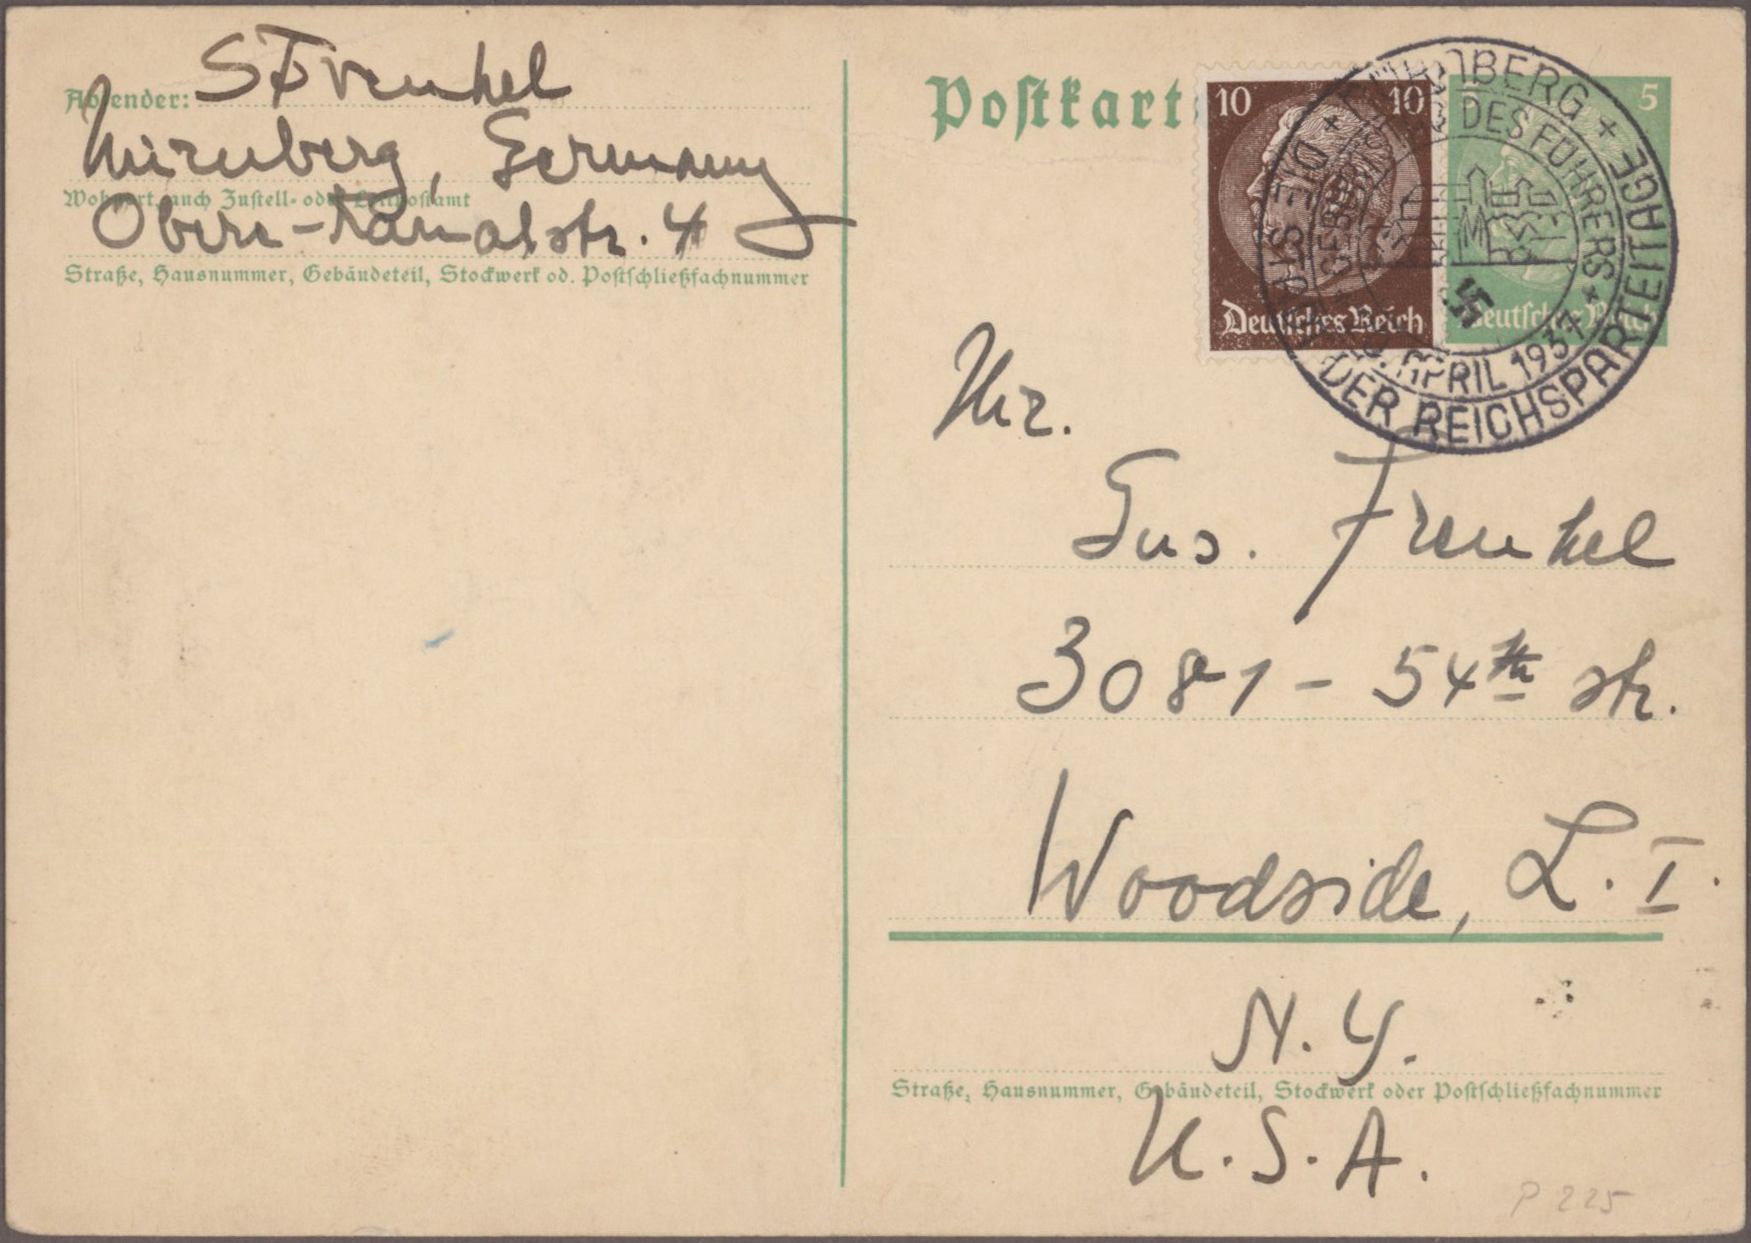 Absender: S. Frenkel
Nürnberg, Germany
Wohnort, auch Zustell- oder Leitpostamt
Obere-Kanalstr. 4
Straße, Hausnummer, Gebäudeteil, Stockwerk od. Postschließfachnummer
Postkart
10 10
Deutsches Reich
5
Deutsches Reich
NÜRNBERG
DIE STADT DER REICHSPARTEITAGE
GEBURTSTAG DES FÜHRERS
APRIL 1937
Mr.
Gus. Frenkel
3081 - 54th str.
Woodside, L. I.
N. Y.
Straße, Hausnummer, Gebäudeteil, Stockwerk oder Postschließfachnummer
U. S. A.
P 225